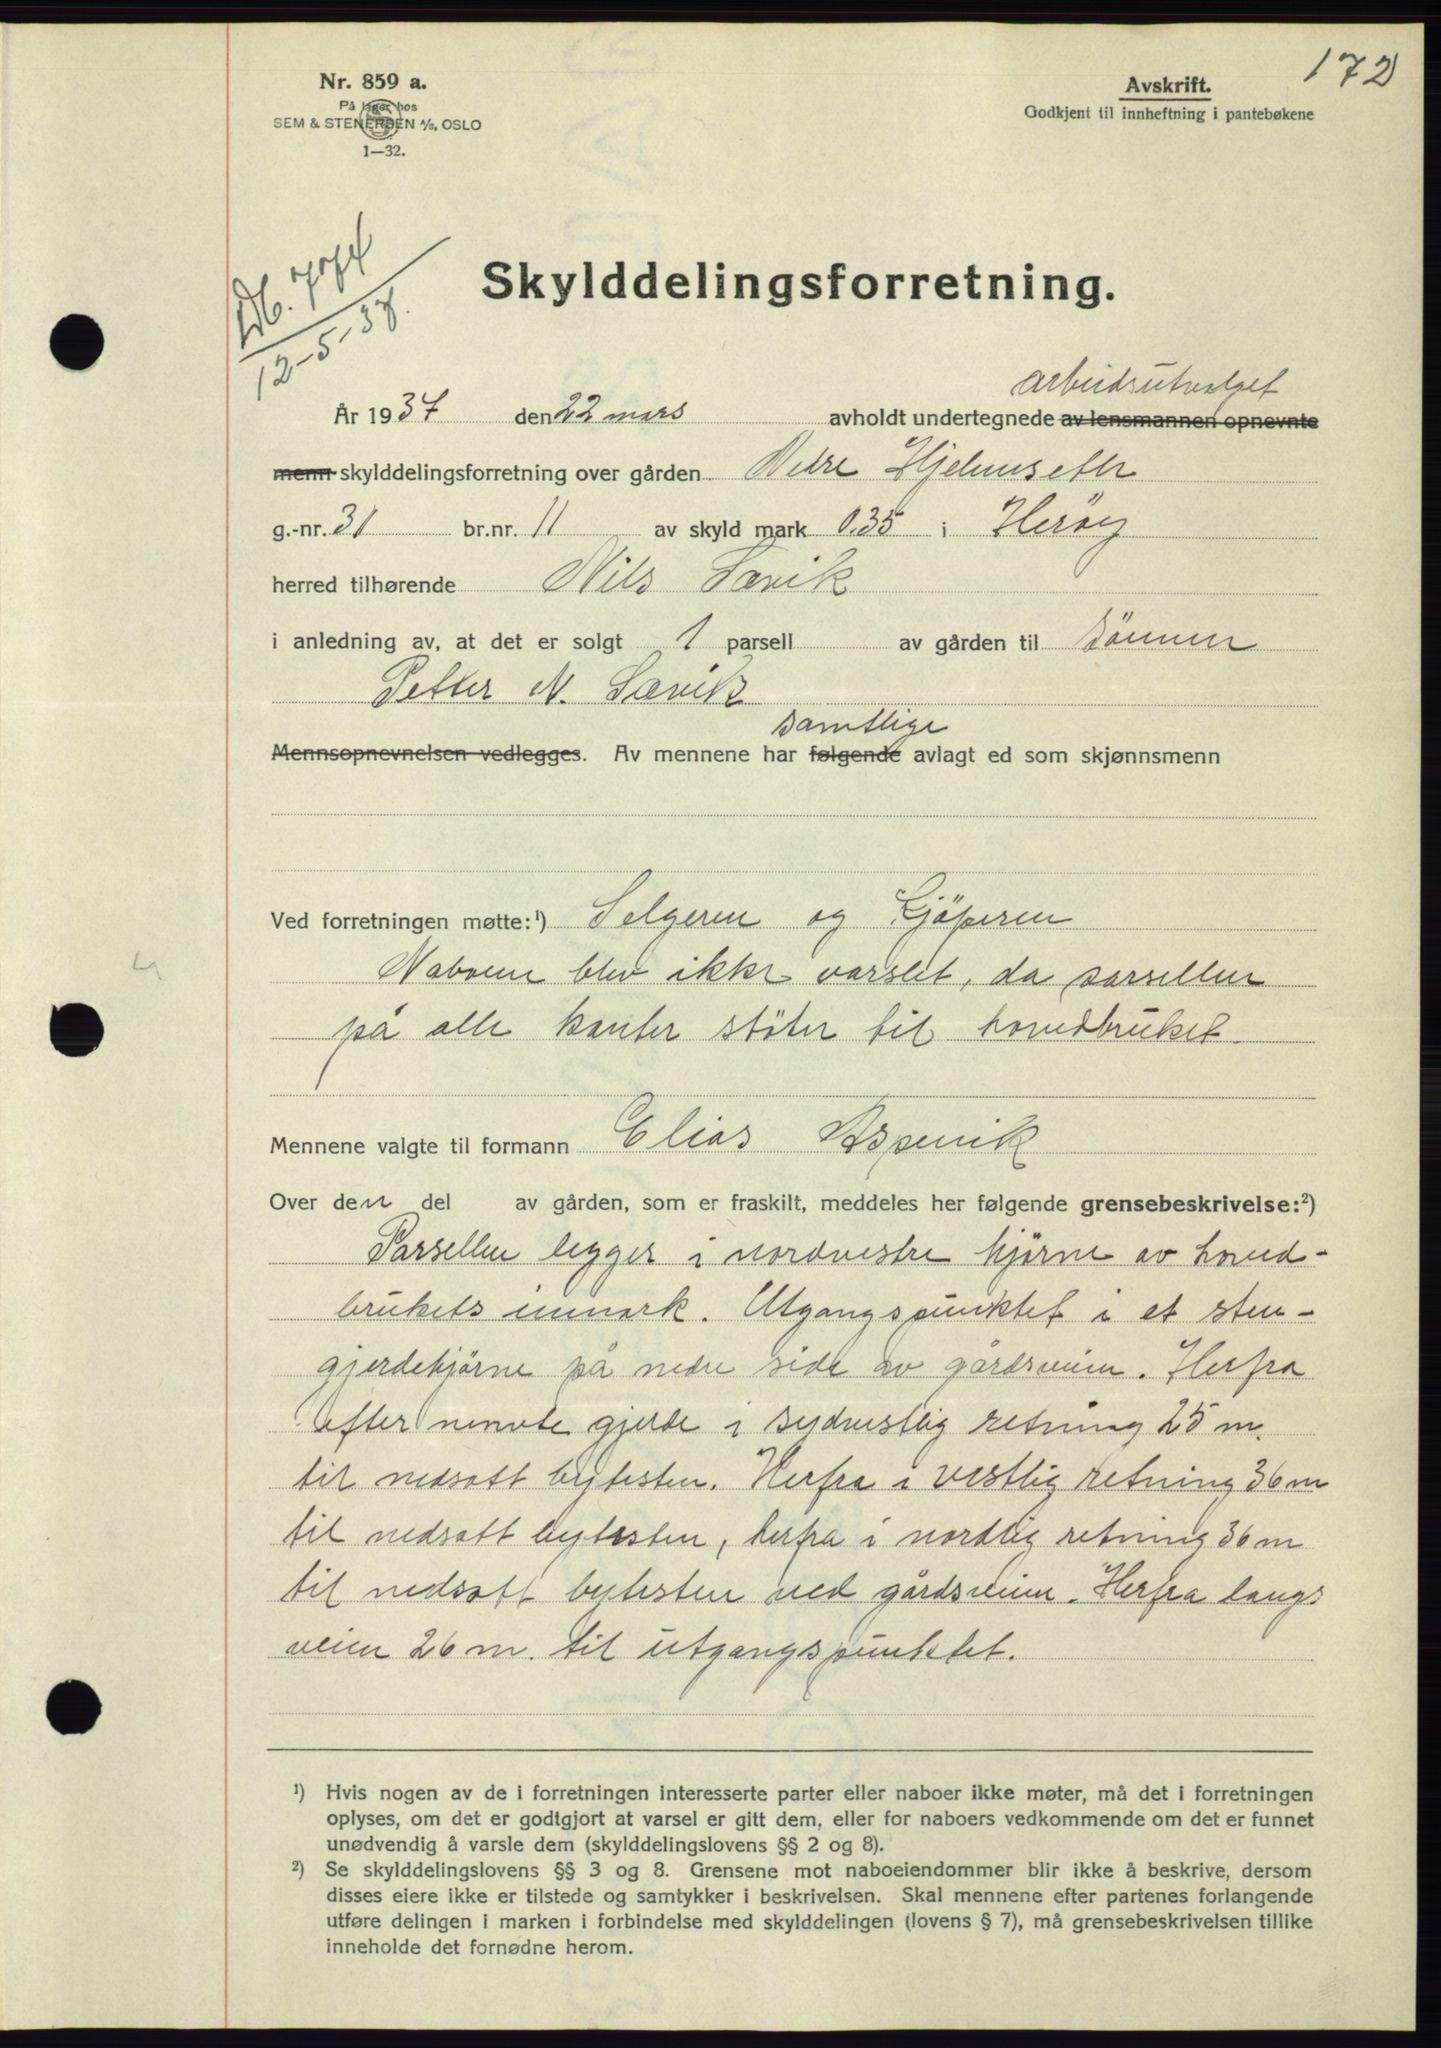 172
Nr. 859 a.
På lager hos
SEM & STENERSEN A/S, OSLO
1—32.
Avskrift.
Godkjent til innheftning i pantebøkene
12-5-37.
Skylddelingsforretning.
arbeidsutvalget
År 1937 den 22 mars avholdt undertegnede av lensmannen opnevnte
menn skylddelingsforretning over gården Nedre Hjelmseth
g.-nr. 31 br.nr. 11 av skyld mark 0.35 i Herøy
herred tilhørende Nils Sævik
i anledning av, at det er solgt 1 parsell av gården til sönnen
Petter N. Sævik
samtlige
Mennsopnevnelsen vedlegges. Av mennene har følgende avlagt ed som skjønnsmenn
Ved forretningen møtte:¹) Selgeren og Kjöperen
Naboene blev ikke varslet, da parsellen
på alle kanter stöter til hovedbruket.
Mennene valgte til formann Elias Aspevik
Over den del av gården, som er fraskilt, meddeles her følgende grensebeskrivelse:²)
Parsellen ligger i nordvestre hjörne av hoved-
brukets inmark. Utgangspunktet i et sten-
gjerdehjörne på nedre side av gårdsveien. Herfra
efter nevnte gjerde i sydvestlig retning 25 m.
til nedsatt bytesten. Herfra i vestlig retning 36 m
til nedsatt bytesten, herfra i nordlig retning 36 m
til nedsatt bytesten ved gårdsveien. Herfra langs
veien 26 m. til utgangspunktet.
¹) Hvis nogen av de i forretningen interesserte parter eller naboer ikke møter, må det i forretningen
oplyses, om det er godtgjort at varsel er gitt dem, eller for naboers vedkommende om det er funnet
unødvendig å varsle dem (skylddelingslovens §§ 2 og 8).
²) Se skylddelingslovens §§ 3 og 8. Grensene mot naboeiendommer blir ikke å beskrive, dersom
disses eiere ikke er tilstede og samtykker i beskrivelsen. Skal mennene efter partenes forlangende
utføre delingen i marken i forbindelse med skylddelingen (lovens § 7), må grensebeskrivelsen tillike
inneholde det fornødne herom.